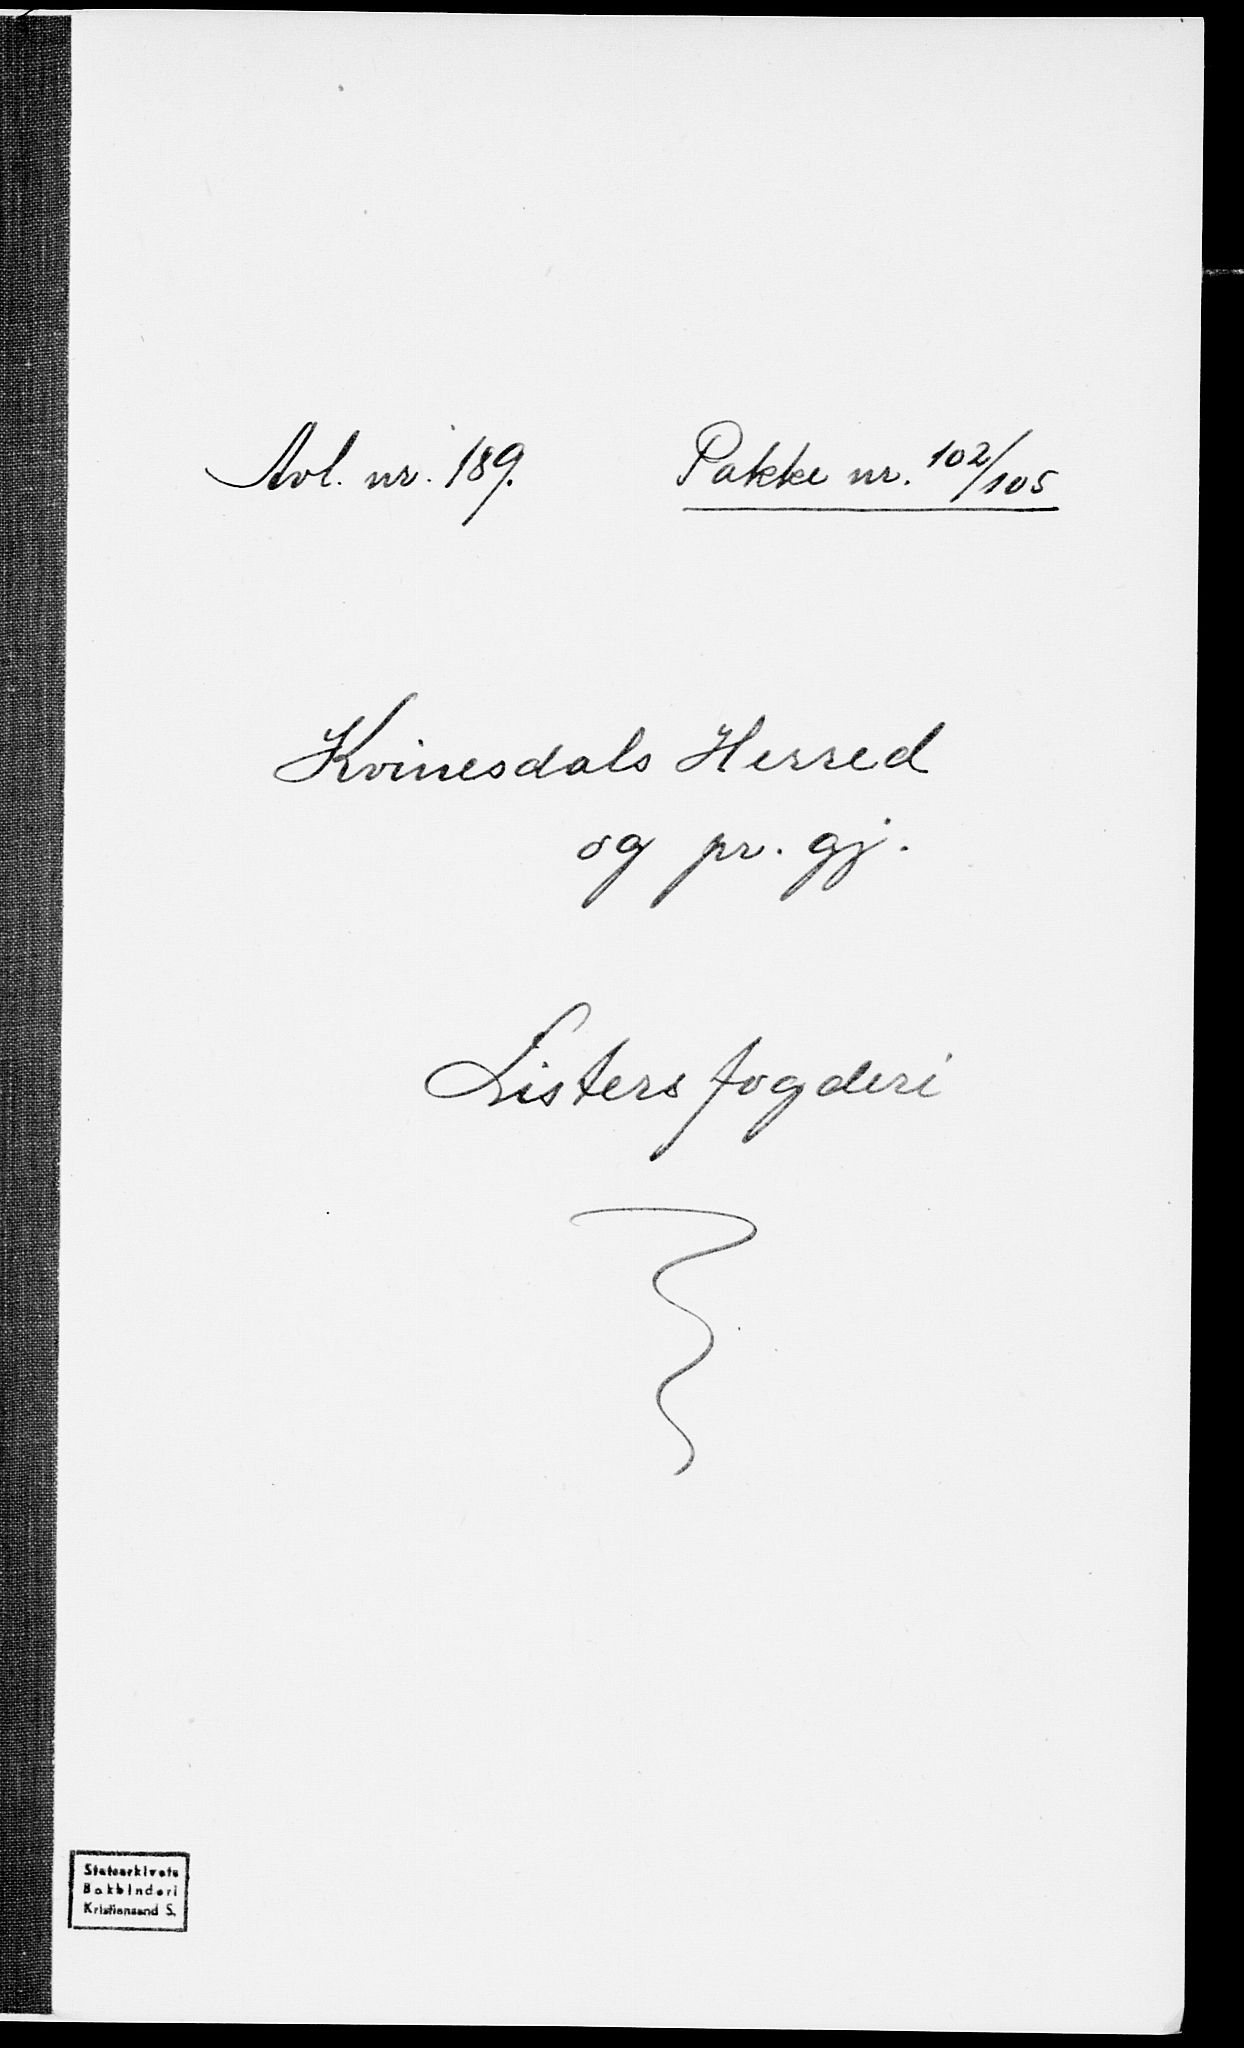 Avl. nr. 189. Pakke nr. 102/105
Kvinesdals Herred
og pr. gj.
Listers fogderi
Statsarkivets
Bokbinderi
Kristiansand S.